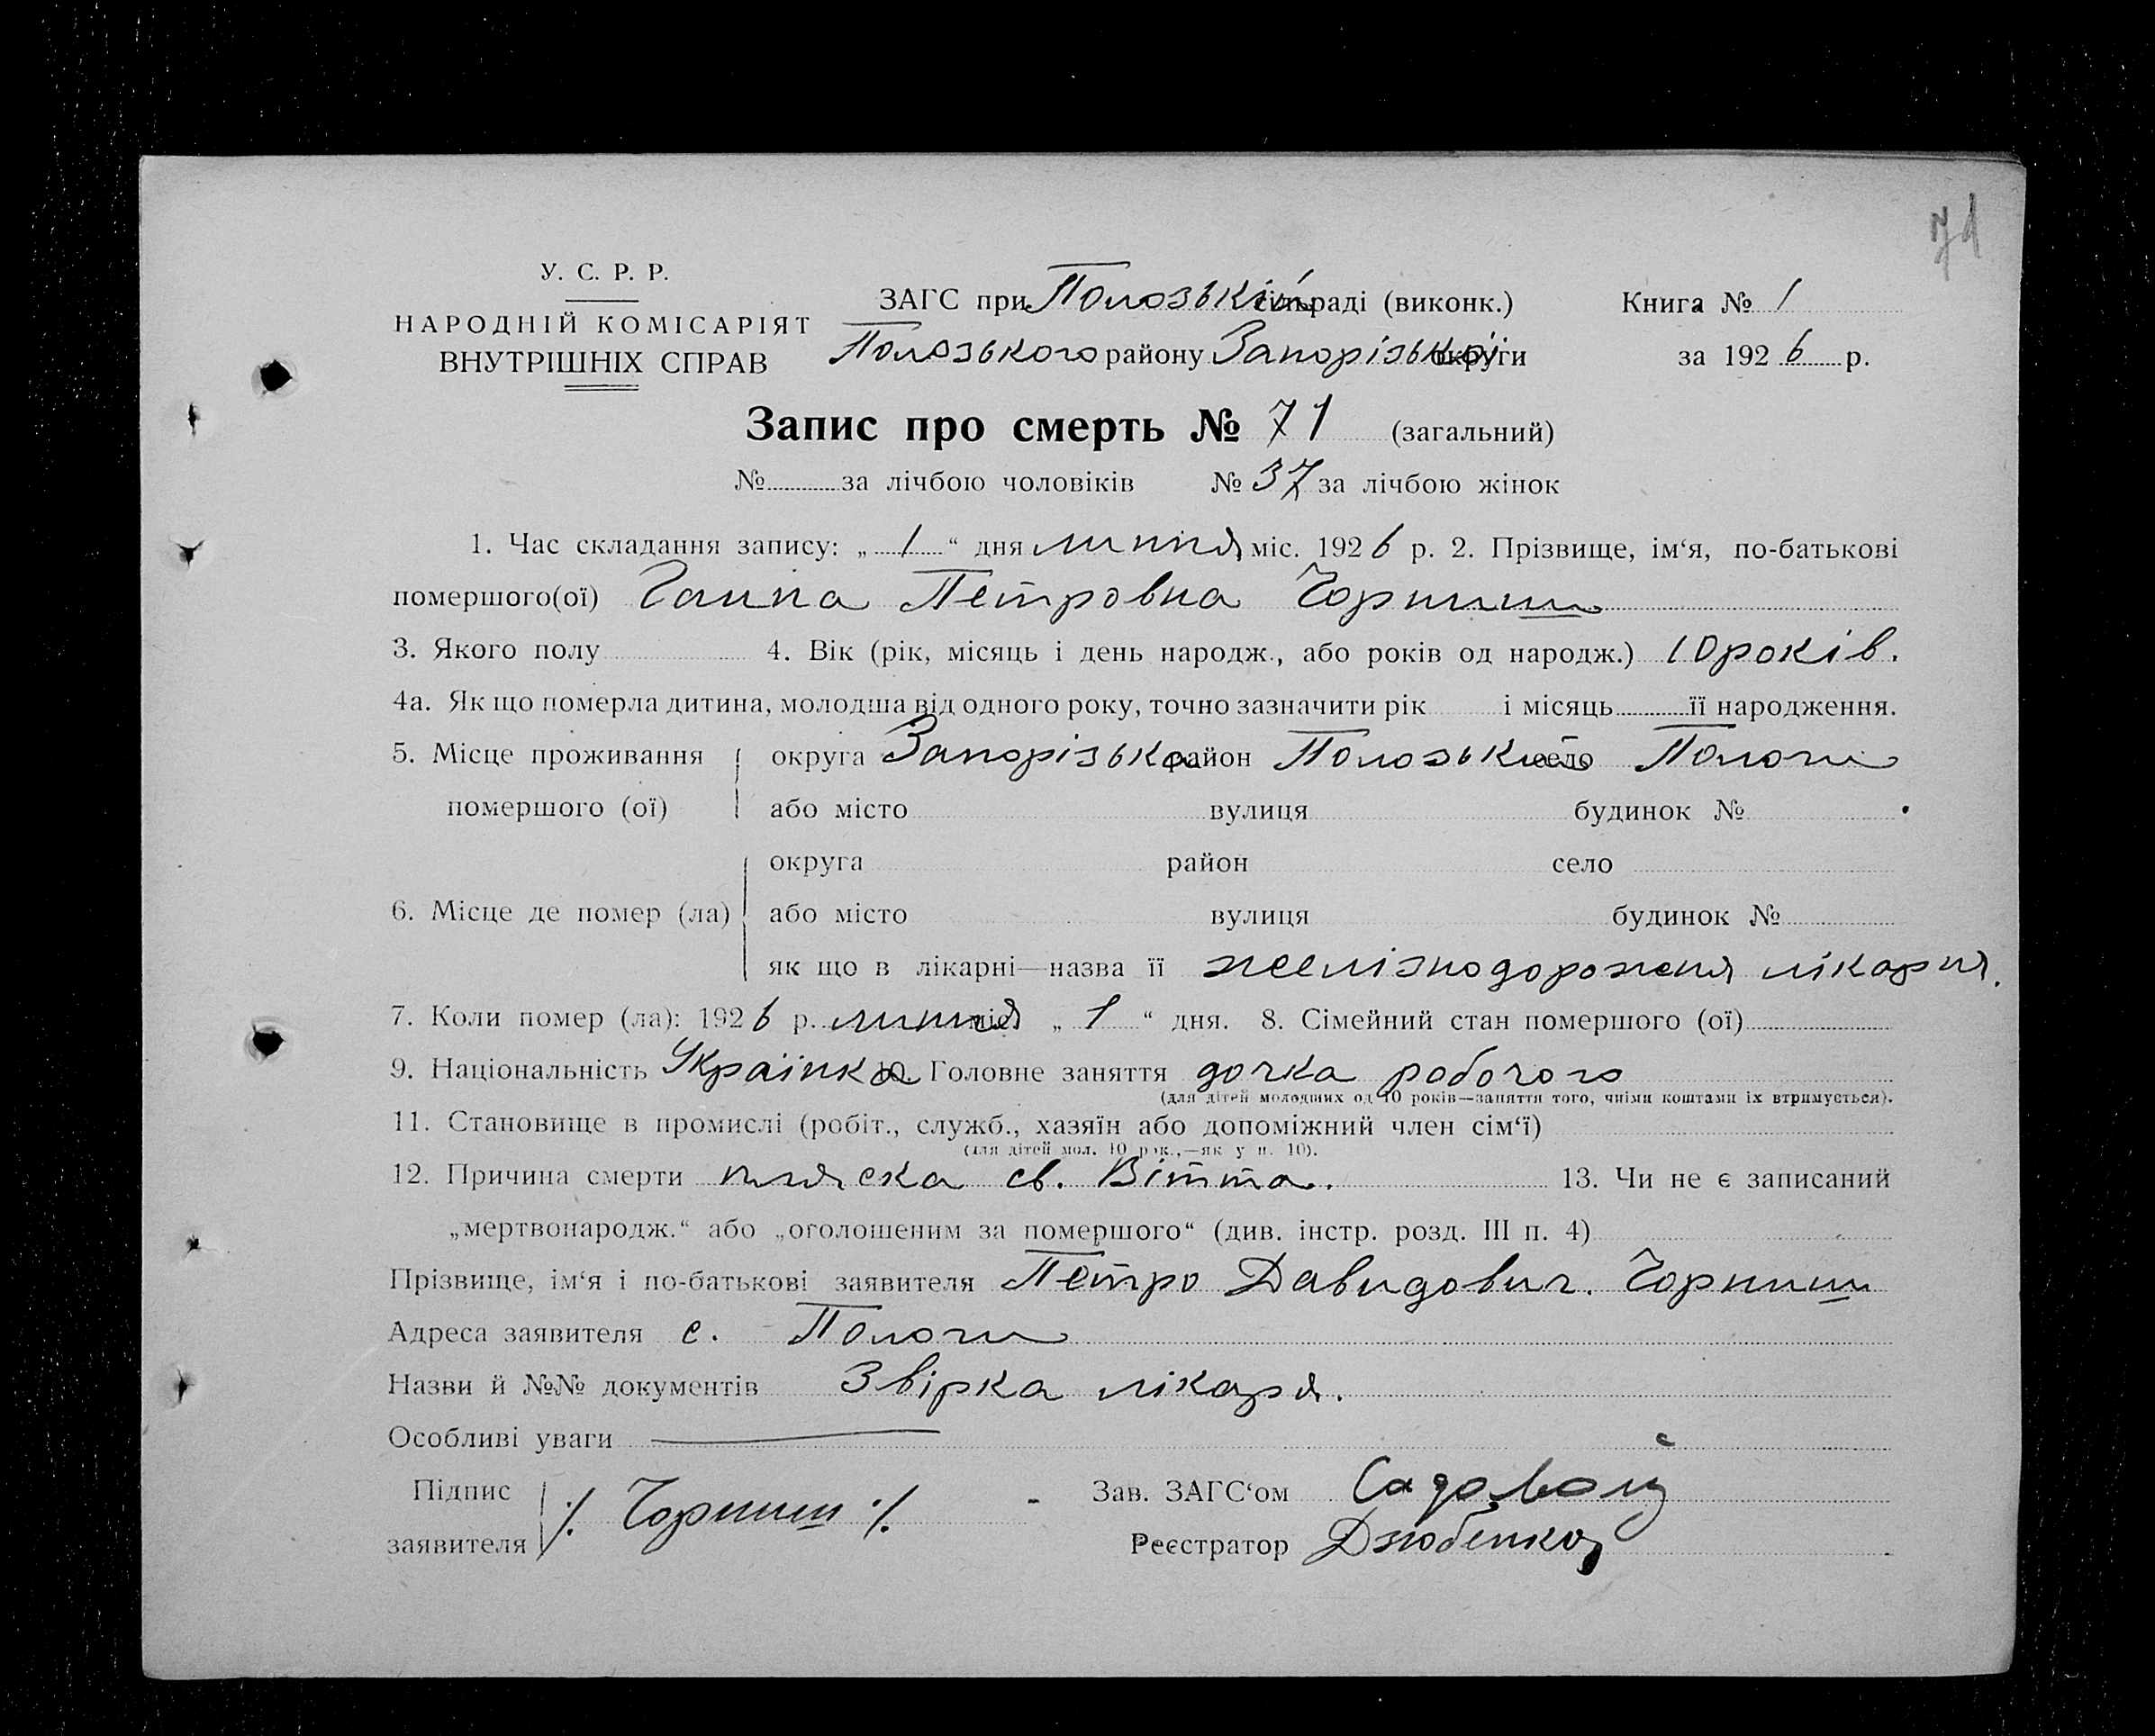 71
У. С. Р. Р.
НАРОДНІЙ КОМІСАРІЯТ
ВНУТРІШНІХ СПРАВ
ЗАГС при Пологській сільраді (виконк.) Книга № 1
Пологського району Запорізької округи за 1926 р.
Запис про смерть № 71 (загальний)
№ за лічбою чоловіків № 37 за лічбою жінок
1. Час складання запису: „1“ дня липня міс. 1926 р. 2. Прізвище, ім‘я, по-батькові
помершого(ої) Ганна Петровна Чорниш
3. Якого полу 4. Вік (рік, місяць і день народж., або років од народж.) 10 років.
4а. Як що померла дитина, молодша від одного року, точно зазначити рік і місяць її народження.
5. Місце проживання округа Запорізька район село Пологи
помершого (ої) або місто вулиця будинок №
округа район село
6. Місце де помер (ла) або місто вулиця будинок №
як що в лікарні—назва її лікарня.
7. Коли помер (ла): 1926 р. липня міс. „1“ дня. 8. Сімейний стан помершого (ої)
9. Національність Українка 10. Головне заняття дочка робочого
(для дітей молодших од 10 років—заняття того, чиїми коштами їх втримується).
11. Становище в промислі (робіт., служб., хазяїн або допоміжний член сім‘ї)
(для дітей мол. 10 рок.,—як у п. 10).
12. Причина смерти пляска св. Вітта. 13. Чи не є записаний
„мертвонародж.“ або „оголошеним за помершого“ (див. інстр. розд. III п. 4)
Прізвище, ім‘я і по-батькові заявителя Петро Давидович. Чорниш
Адреса заявителя с. Пологи
Назви й №№ документів Звірка лікаря.
Особливі уваги
Підпис Зав. ЗАГС‘ом Садовой
заявителя Чорниш Реєстратор Дзюбенко